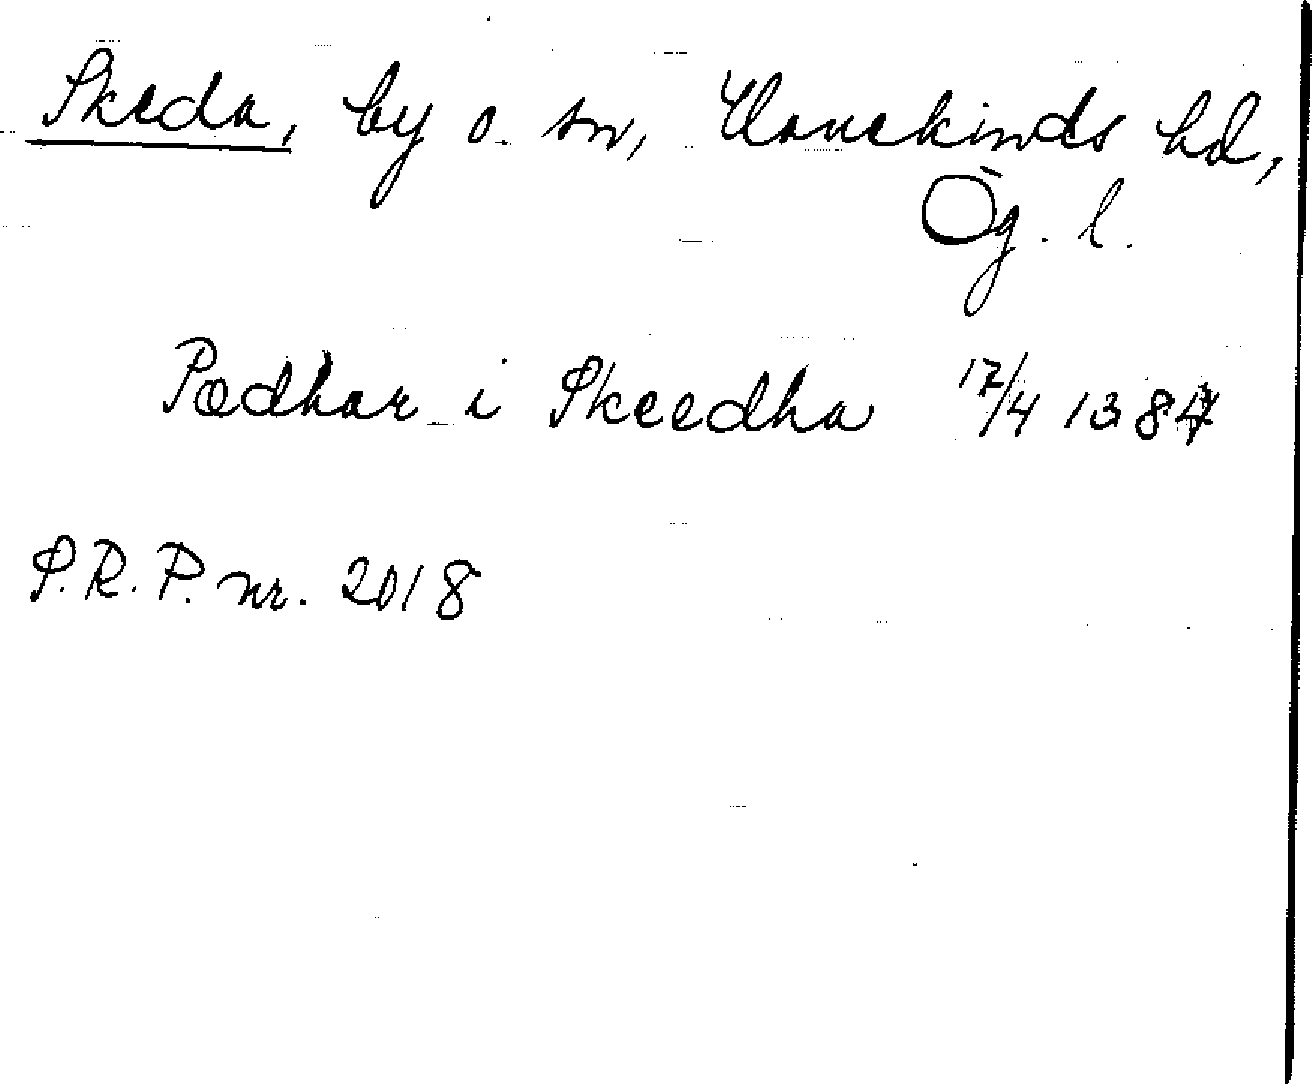 Skeda, by o. sn, Hanekinds hd,
Ög. l.
Pædhar i Skeedha 17/4 1384
S.R.P. nr. 2018